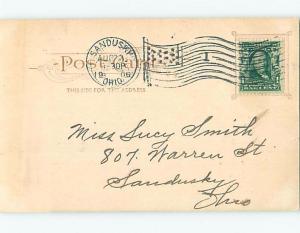 SANDUSKY
AUG 23
OHIO.
Post Card
THIS SIDE FOR THE ADDRESS
1
Miss Lucy Smith
807. Warren St
Sandusky
Ohio